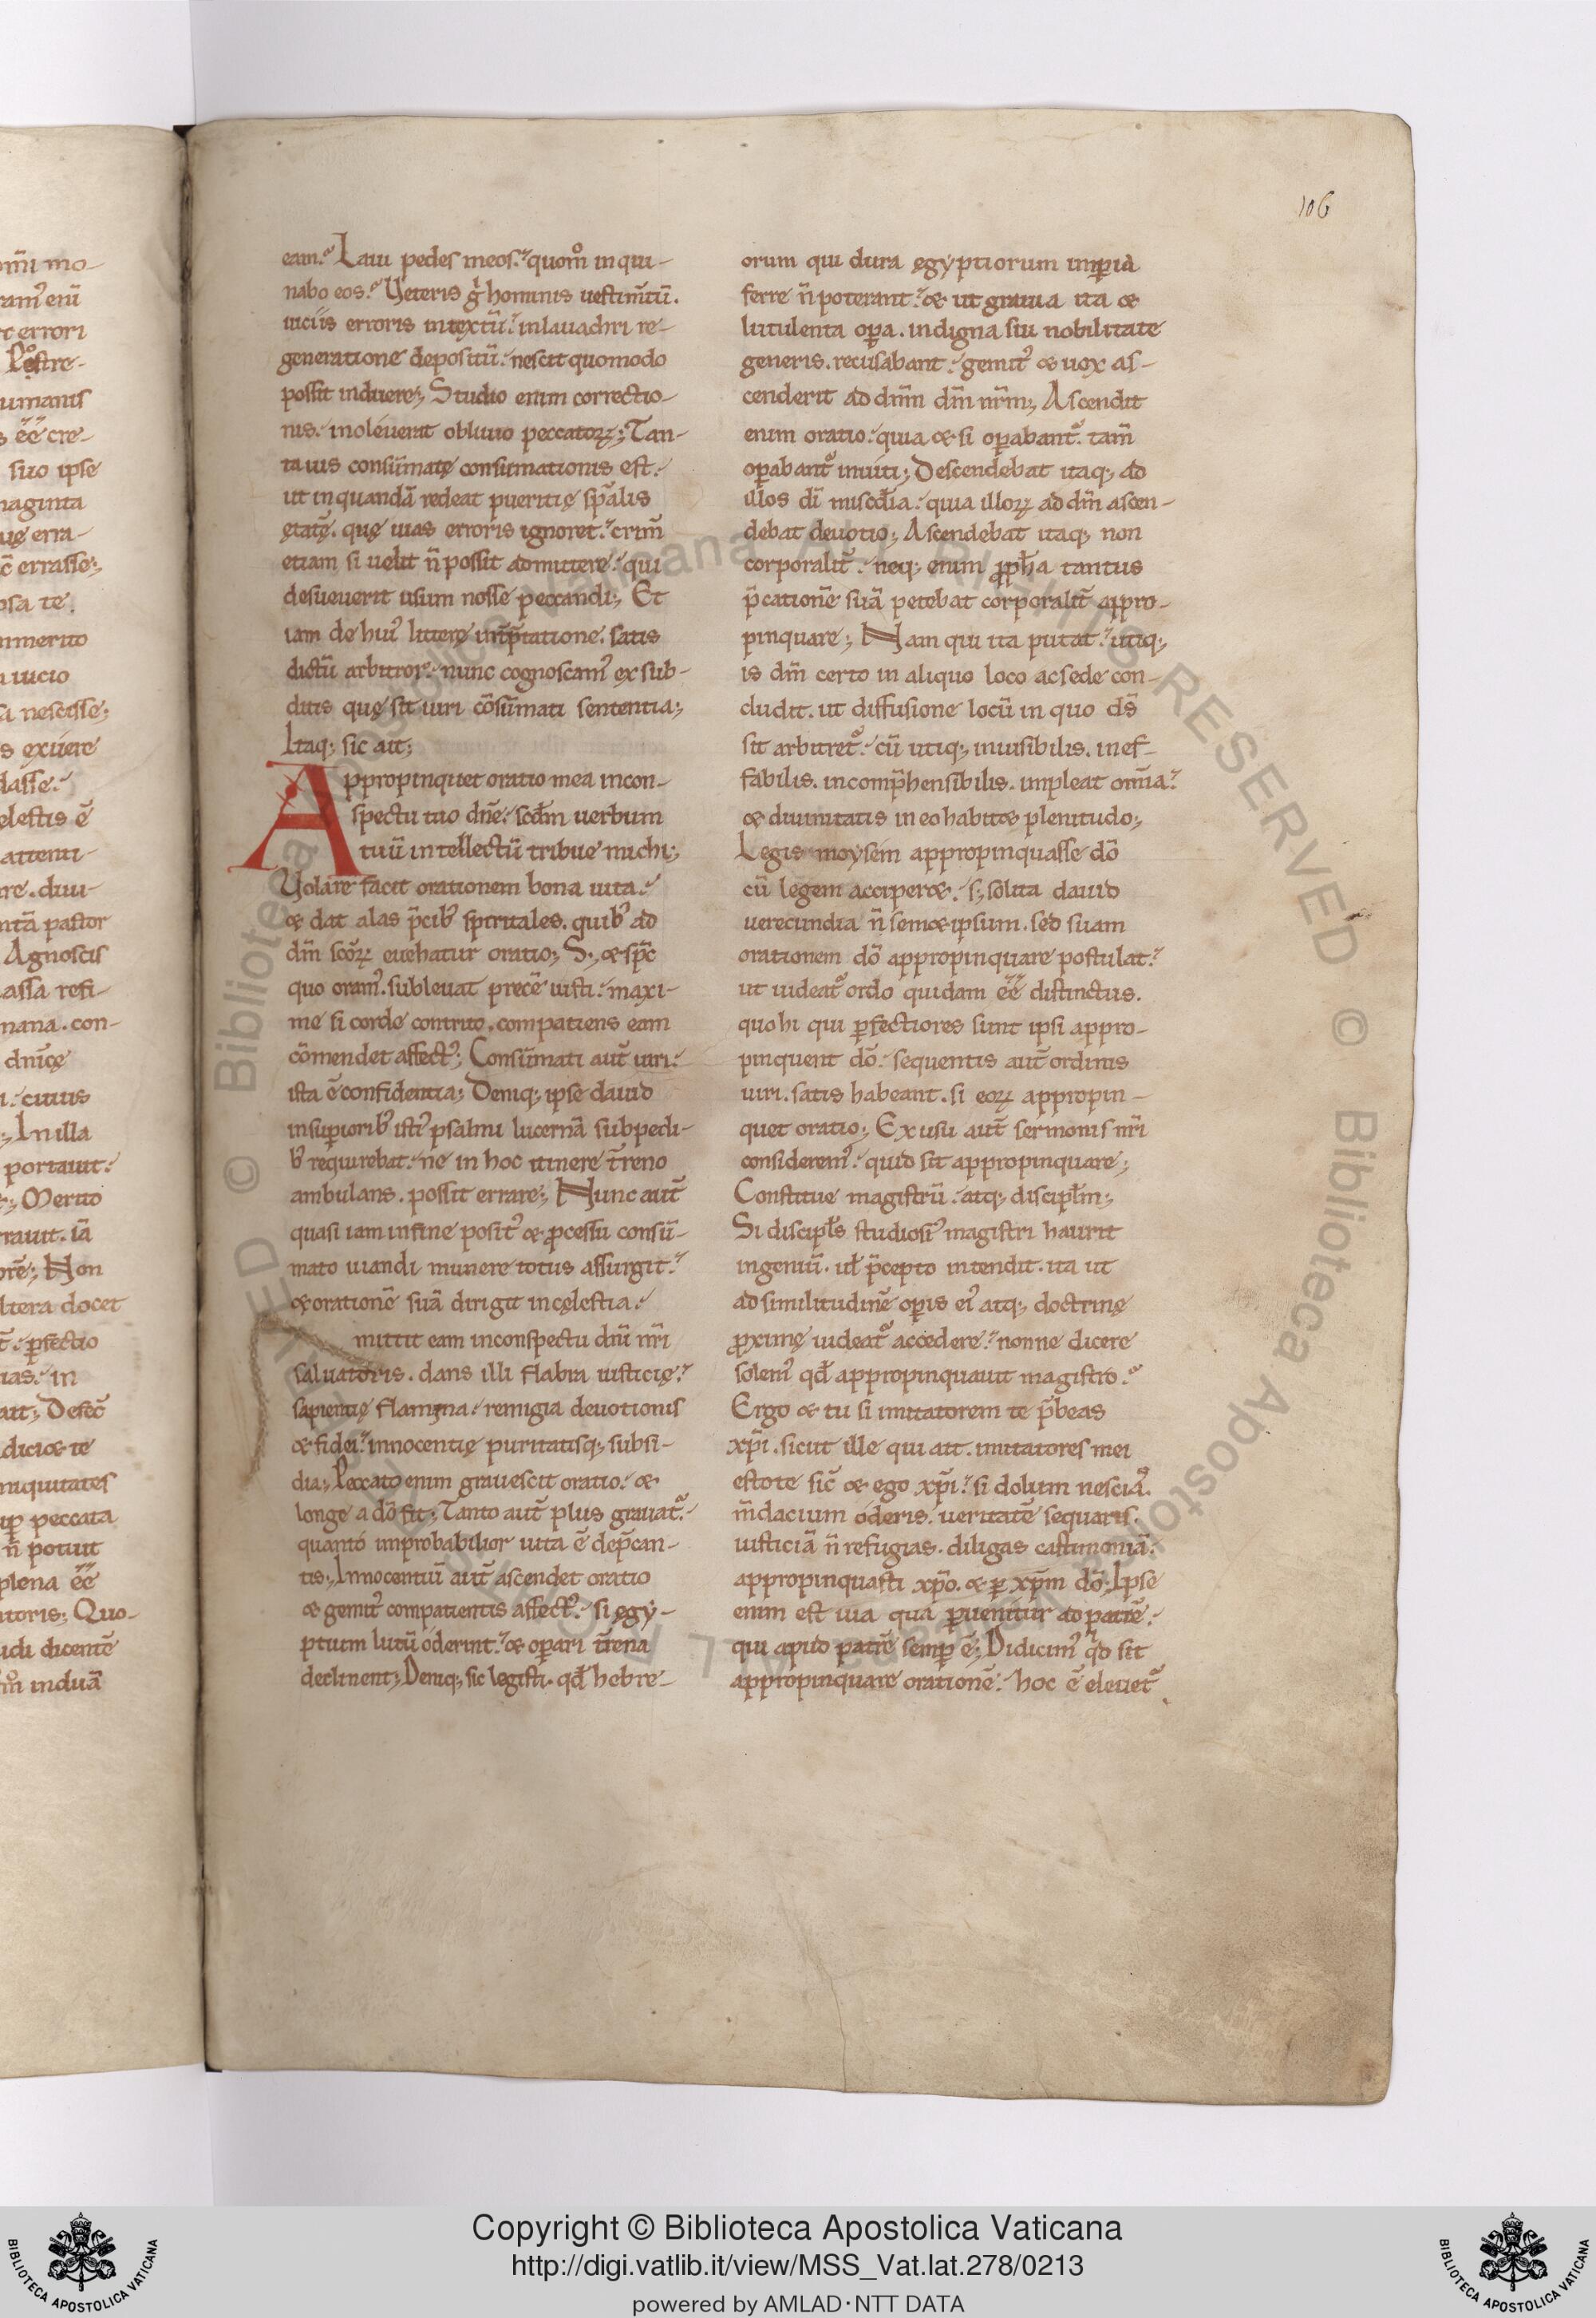 106
eam.' Laui pedes meos.' quom̊ inqui-
nabo eos.' Veteris g̍ hominis uestim̄tū.
uiciis erroris intextū.' inlauachri re-
generatione depositū.' nescit quomodo
possit induere; Studio enim correctio-
nis.' inoleuerat obliuio peccatoꝝ; Tan-
ta uis consūmatę consumationis est.'
ut inquandā redeat pueritię sp̄alis
ętatē. quę uias erroris ignoret.' crim̄
etiam si uelit n̄ possit admittere.' qui
desueuerit usum nosse peccandi; Et
iam de hui᾽ litterę int̄p̄tatione. satis
dictū arbitror.' nunc cognoscam᾽ ex sub-
ditis quę sit uiri cōsūmati sententia;
Itaq; sic ait;
Appropinquet oratio mea incon-
spectu tuo dn̄e.' scd̄m uerbum
tuū intellectū tribue michi;
Uolare facit orationem bona uita.'
⁊ dat alas p̄cib᾽ spirituales. quib᾽ ad
dm̄ scōꝝ euehatur oratio; S; ⁊ sp̄c
quo oram᾽. subleuat precē iusti.' maxi-
me si corde contrito. compatiens eam
cōmendet affect᾽; Consūmati aut̄ uiri.'
ista ē confidentia; Deniq; ipse dauid
insuꝑiorib᾽ isti᾽ psalmi lucernā subpedi-
b᾽ requirebat.' ne in hoc itinere t̄reno
ambulans. possit errare; Nunc aut̄
quasi iam infine posit᾽ ⁊ ꝓcessu consū-
mato uiandi munere totus assurgit.'
⁊ orationē suā dirigit incęlestia.'
mittit eam inconspectu dn̄i nr̄i
saluatoris. dans illi flabra iusticię.'
sapientię flamina.' remigia deuotionis
⁊ fidei.' innocentię puritatisq; subsi-
dia; Peccato enim grauescit oratio.' ⁊
longe a dō fit; Tanto aut̄ plus grauat᷑.'
quanto improbabilior uita ē dep̄can-
tis; Innocentiū aut̄ ascendet oratio
⁊ gemit᾽ compatientis affect᾽.' si egy-
ptium lutū oderint.' ⁊ oꝑari t̄rena
declinent; Deniq; sic legisti. qđ hebre-
orum qui dura ęgyptiorum imꝑia
ferre n̄ poterant.' ⁊ ut grauia ita ⁊
lutulenta oꝑa. indigna sui nobilitate
generis. recusabant.' gemit᾽ ⁊ uox as-
cenderit ad dn̄m dm̄ nr̄m; Ascendit
enim oratio.' quia ⁊ si oꝑabant᷑. tam̄
oꝑabant᷑ inuiti; Descendebat itaq; ad
illos dī miscđia.' quia illoꝝ ad dm̄ ascen-
debat deuotio; Ascendebat itaq; non
corporalit̄.' neq; enim ꝓph̄a tantus
p̄cationē suā petebat corporalit̄ appro-
pinquare; Nam qui ita putat.' utiq;
is dm̄ certo in aliquo loco acsede con-
cludit. ut diffusione locū in quo ds̄
sit arbitret᷑.' cū utiq; inuisibilis. inef-
fabilis. incomp̄hensibilis. impleat om̄ia.'
⁊ diuinitatis in eo habitet plenitudo;
Legis moysem appropinquasse dō
cū legem acciperet.' s; solita dauid
uerecundia n̄ semetipsum. sed suam
orationem dō appropinquare postulat.'
ut uideat᷑ ordo quidam eē distinctus.
quo hi qui ꝑfectiores sunt ipsi appro-
pinquent dō.' sequentis aut̄ ordinis
uiri. satis habeant. si eoꝝ appropin-
quet oratio; Ex usu aut̄ sermonis nr̄i
considerem᾽.' quid sit appropinquare;
Constitue magistrū.' atq; discipłm;
Si discipłs studiosi᾽ magistri haurit
ingeniū. uł p̄cepto intendit. ita ut
ad similitudinē oꝑis ei᾽ atq; doctrinę
ꝓximę uideat᷑ accedere.' nonne dicere
solem᾽ qđ appropinquauit magistro.'
Ergo ⁊ tu si imitatorem te p̄beas
xp̄i. sicut ille qui ait. imitatores mei
estote sic̄ ⁊ ego xp̄i.' si dolum nescia᷑.
m̄dacium oderis. ueritatē sequaris.
iusticiā n̄ refugias. diligas castimoniā.'
appropinquasti xp̄o. ⁊ ꝑ xp̄m dō; Ipse
enim est uia qua ꝑuenitur ad patrē.'
qui apud patrē semꝑ ē; Didicim᾽ qd sit
appropinquare orationē.' hoc ē eleuet᷑
Copyright © Biblioteca Apostolica Vaticana
http://digi.vatlib.it/view/MSS_Vat.lat.278/0213
powered by AMLAD·NTT DATA